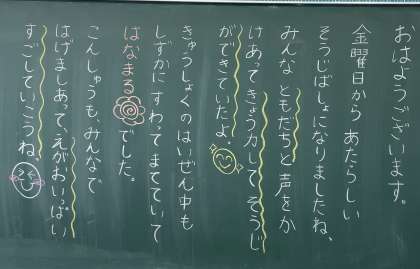 おはようございます。
金曜日から あたらしい
そうじばしょになりましたね、
みんな ともだちと声をか
けあって きょう力 して そうじ
ができていたよ。
きゅうしょくのはいぜん中も
しずかに すわって まてていて
はなまる でした。
こんしゅうも、みんなで
はげましあって、えがおいっぱい
すごしていこうね。